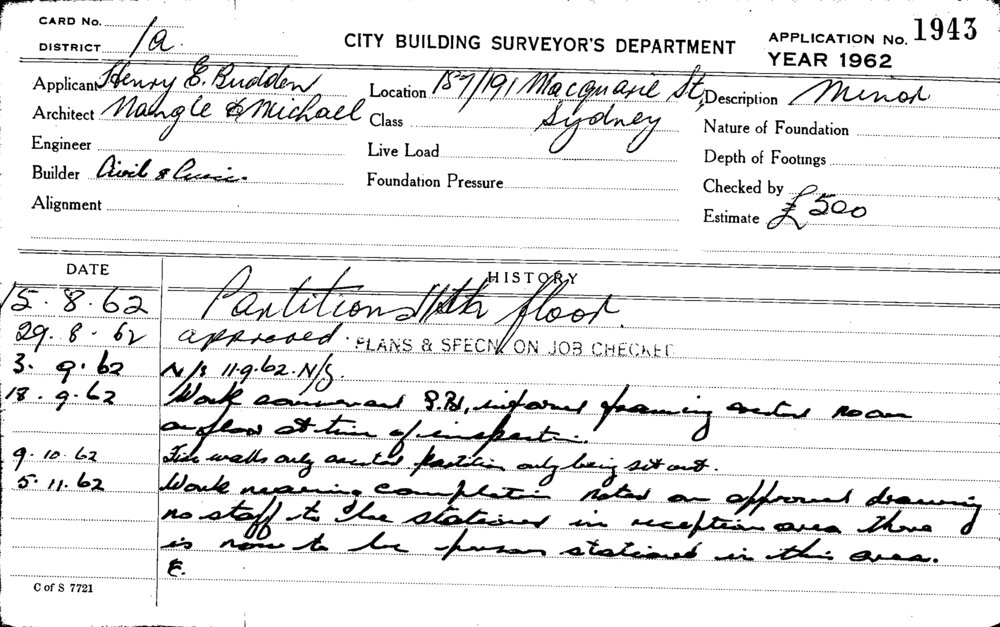 CARD No.
DISTRICT 1a.
CITY BUILDING SURVEYOR'S DEPARTMENT
APPLICATION No. 1943
YEAR 1962
Applicant Henry E. Budden
Architect Nangle & Michael
Engineer
Builder Civil & Civic.
Alignment
Location 187/191 Macquarie St,
Sydney
Class
Live Load
Foundation Pressure
Description Minor
Nature of Foundation
Depth of Footings
Checked by
Estimate £500
DATE HISTORY
15.8.62 Partitions 11th floor.
29.8.62 approved. PLANS & SPECN, ON JOB CHECKED
3.9.62 N/S 11.9.62. N/S.
18.9.62 Work commenced informed framing erected
on floor at time of inspection.
9.10.62 walls only erected partition only being set out.
5.11.62 Work nearing completion noted on approved drawing
no staff to be stationed in reception area there
is now to be person stationed in this area.
E.
C of S 7721